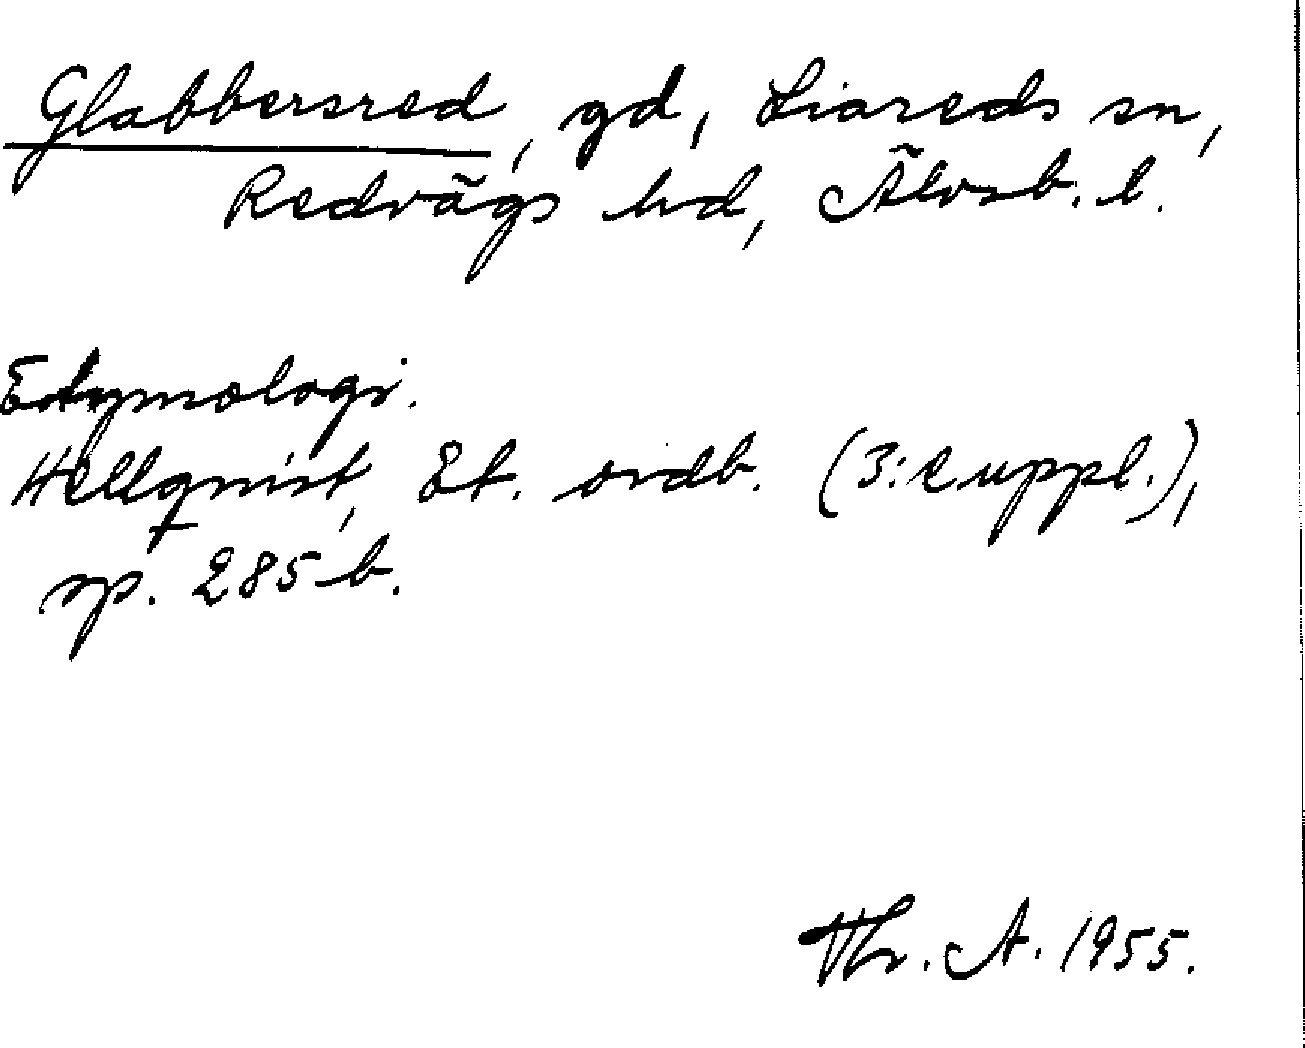 Glabbersred, gd, Liareds sn,
Redvägs hd, Älvsb. l.
Etymologi.
Hellqvist, Et. ordb. (3:e uppl.),
sp. 285 b.
Th. A. 1955.